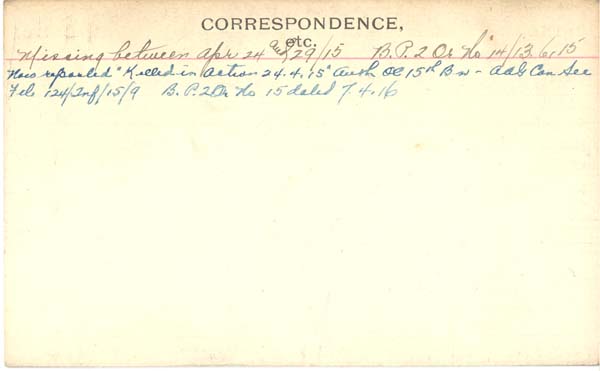 CORRESPONDENCE,
etc.
Missing between Apr 24 and 29/15 B.P.2 Or No 14/13.6.15
Now reported "Killed in Action 24.4.15" Auth OC 15th Bn - AAG Can Sec
File 124/Inf/15/9 B.P.2 Or No 15 dated 7.4.16